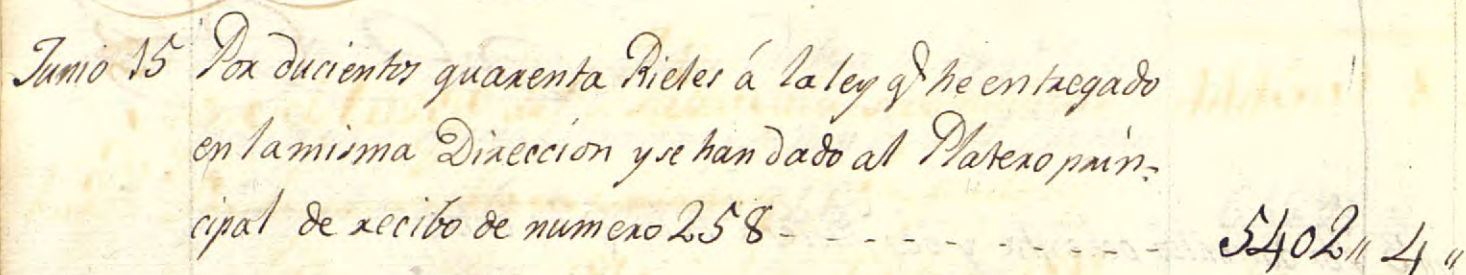 Junio 15 Por ducientos quarenta Rieles á la ley q.^e he entregado
en la misma Dirección y se han dado al Platero prin-
cipal de recibo de numero 258 - - - - - - - - - - 5402 " 4 "